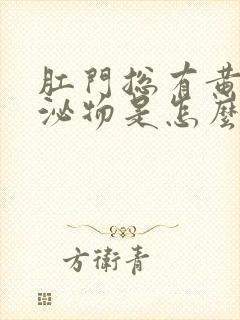 肛門總有黃
泌物是怎麼
方衛青